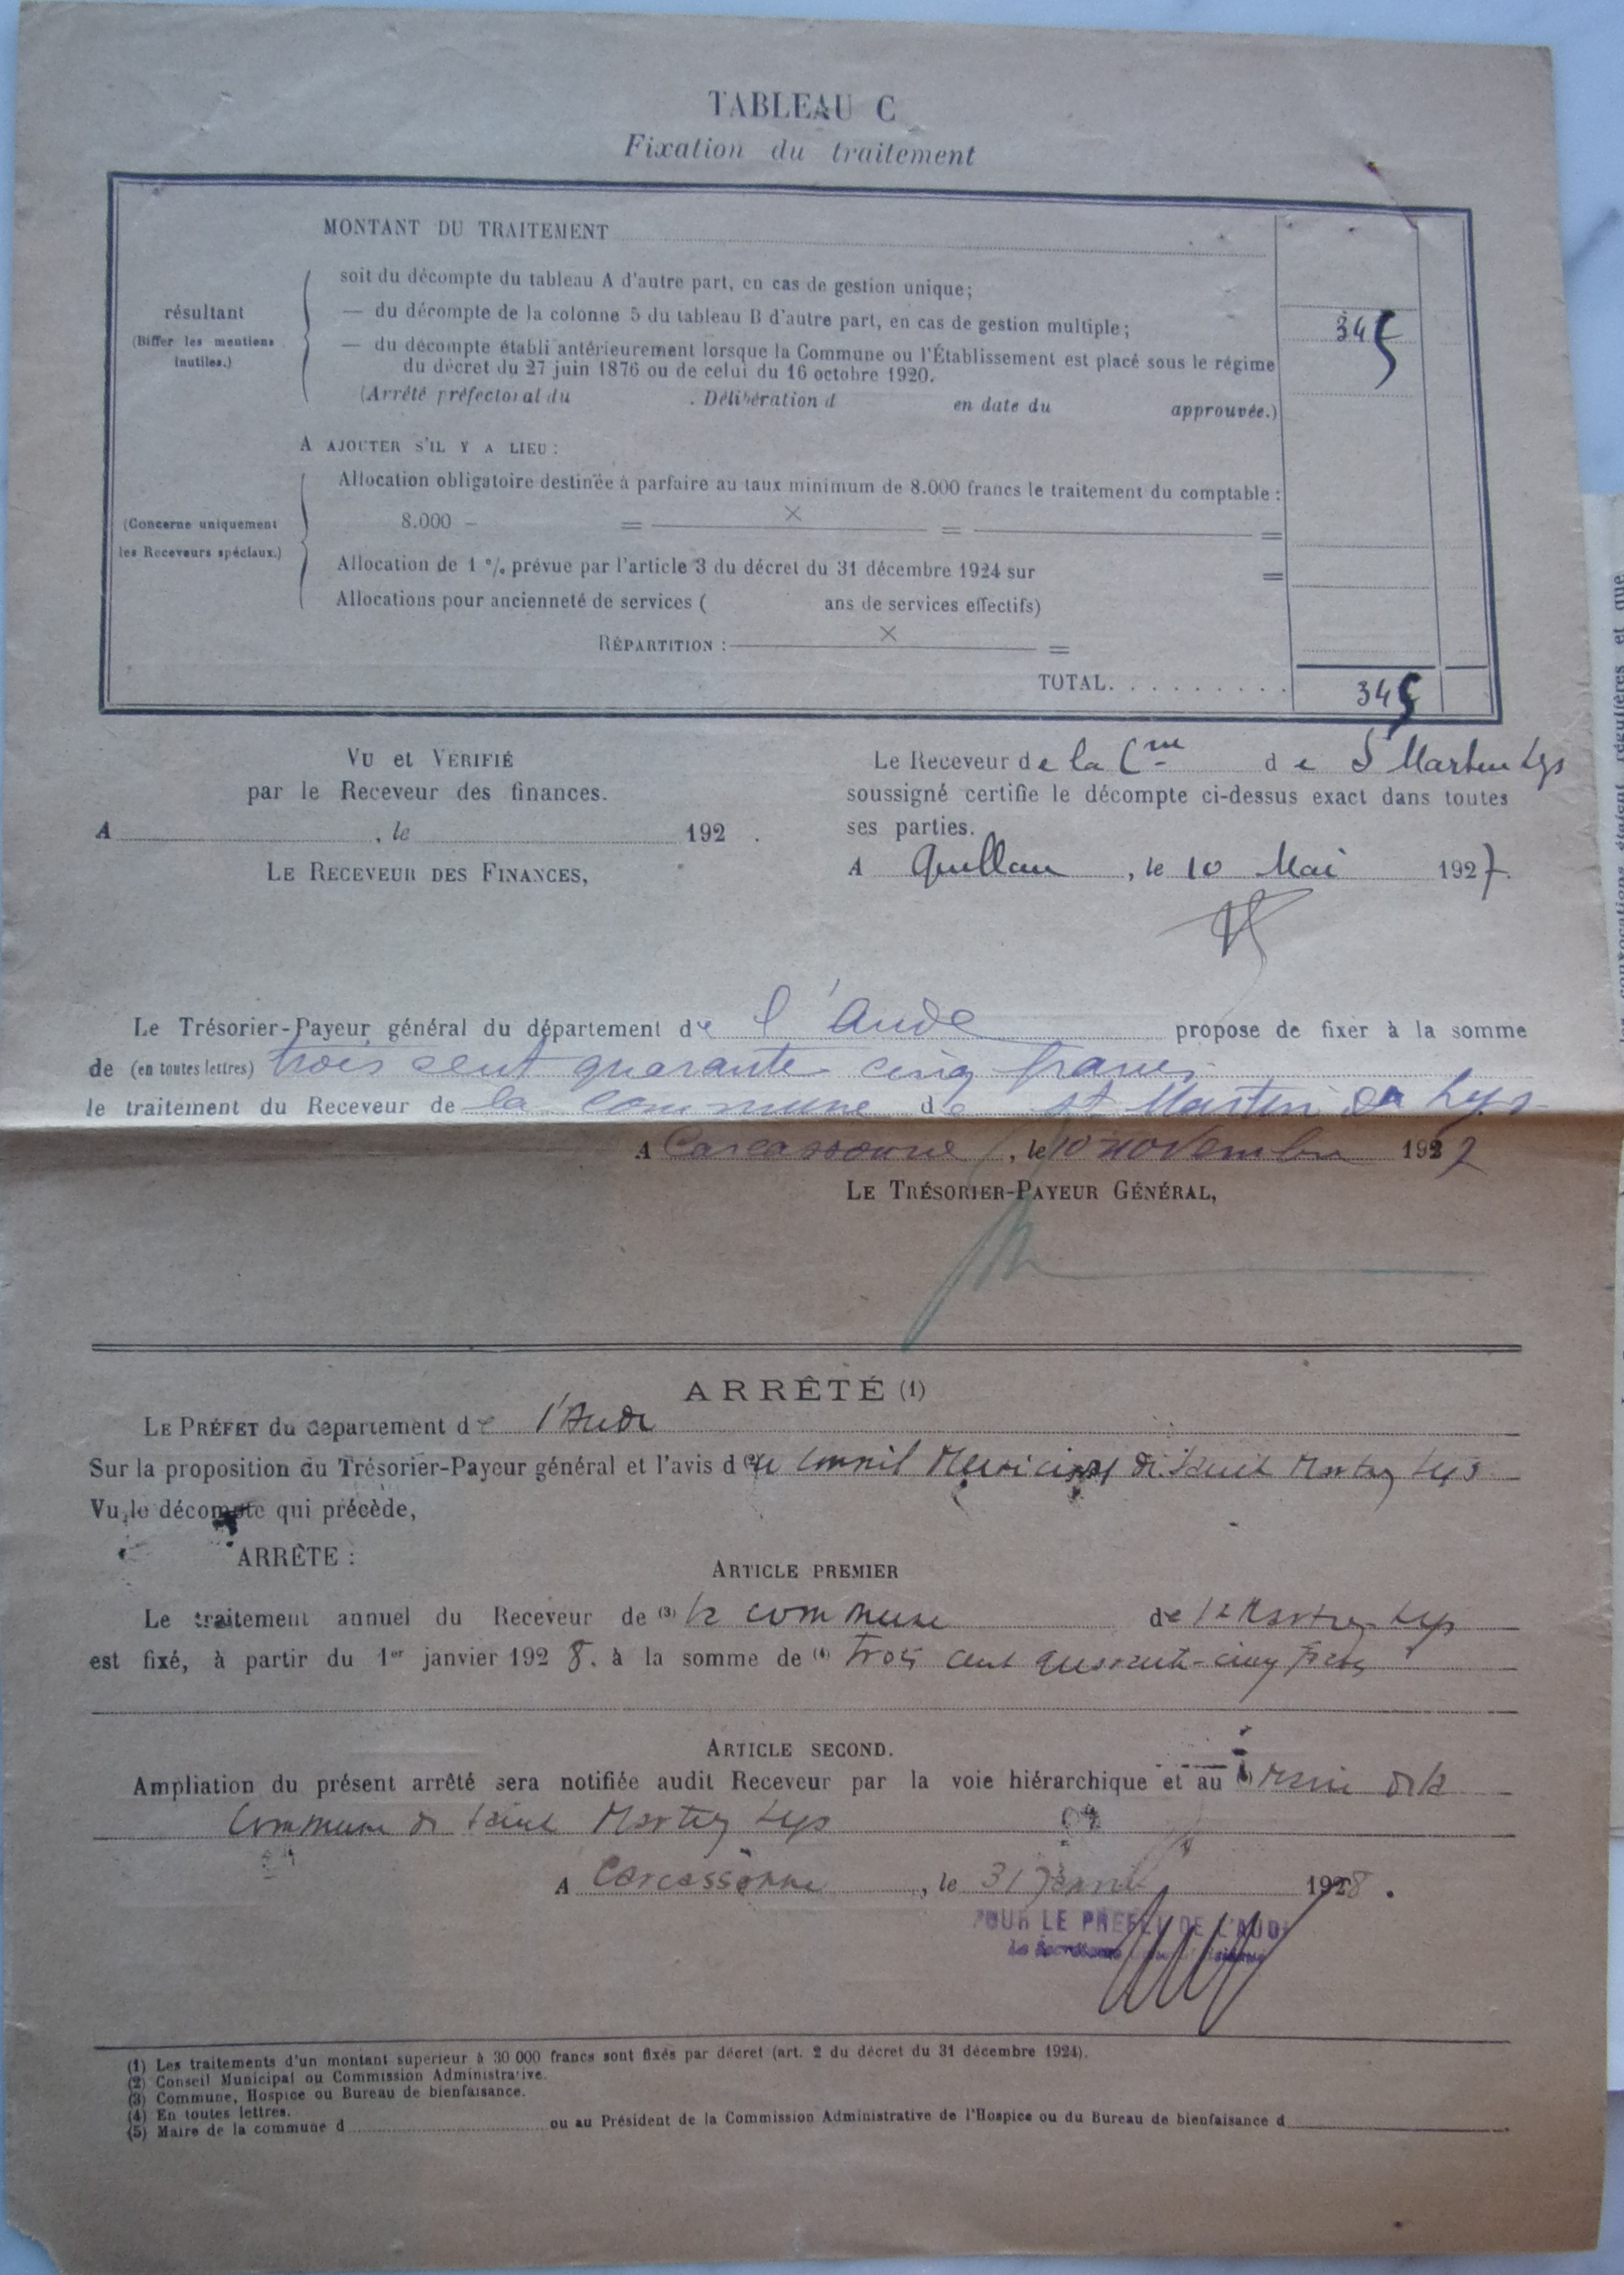 TABLEAU C
Fixation du traitement
MONTANT DU TRAITEMENT
résultant
(Biffer les mentions
inutiles.)
soit du décompte du tableau A d'autre part, en cas de gestion unique;
— du décompte de la colonne 5 du tableau B d'autre part, en cas de gestion multiple;
345
— du décompte établi antérieurement lorsque la Commune ou l'Établissement est placé sous le régime
du décret du 27 juin 1876 ou de celui du 16 octobre 1920.
(Arrêté préfectoral du . Délibération d en date du approuvée.)
A AJOUTER S'IL Y A LIEU :
(Concerne uniquement
les Receveurs spéciaux.)
Allocation obligatoire destinée à parfaire au taux minimum de 8.000 francs le traitement du comptable :
8.000 — = × = =
Allocation de 1 % prévue par l'article 3 du décret du 31 décembre 1924 sur =
Allocations pour ancienneté de services ( ans de services effectifs)
RÉPARTITION : × =
TOTAL. . . . . . . . . . 345
VU et VERIFIÉ
par le Receveur des finances.
A , le 192 .
LE RECEVEUR DES FINANCES,
Le Receveur de la Cne de St Martin Lys
soussigné certifie le décompte ci-dessus exact dans toutes
ses parties.
A Quillan , le 10 Mai 1927.
Le Trésorier-Payeur général du département de l'Aude propose de fixer à la somme
de (en toutes lettres) trois cent quarante cinq francs
le traitement du Receveur de la commune de St Martin Lys
A Carcassonne , le 10 novembre 1927
LE TRÉSORIER-PAYEUR GÉNÉRAL,
ARRÊTÉ (1)
LE PRÉFET du département de l'Aude
Sur la proposition du Trésorier-Payeur général et l'avis du Conseil Municipal de Saint Martin Lys
Vu le décompte qui précède,
ARRÊTE :
ARTICLE PREMIER
Le traitement annuel du Receveur de (3) la commune de St Martin Lys
est fixé, à partir du 1er janvier 1928. à la somme de (4) trois cent quarante-cinq francs
ARTICLE SECOND.
Ampliation du présent arrêté sera notifiée audit Receveur par la voie hiérarchique et au Maire de la
Commune de Saint Martin Lys
A Carcassonne , le 31 Janvier 1928.
POUR LE PRÉFET DE L'AUDE
(1) Les traitements d'un montant supérieur à 30 000 francs sont fixés par décret (art. 2 du décret du 31 décembre 1924).
(2) Conseil Municipal ou Commission Administrative.
(3) Commune, Hospice ou Bureau de bienfaisance.
(4) En toutes lettres.
(5) Maire de la commune d ou au Président de la Commission Administrative de l'Hospice ou du Bureau de bienfaisance d